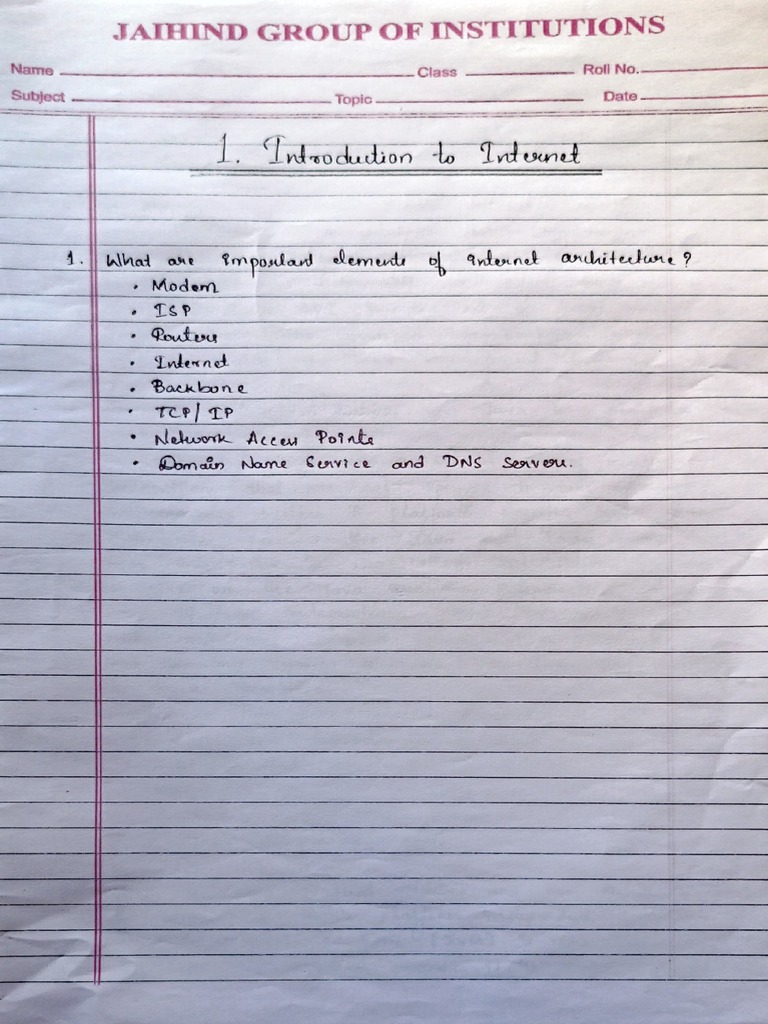 JAIHIND GROUP OF INSTITUTIONS
Name Class Roll No.
Subject Topic Date
1. Introduction to Internet
1. What are important elements of internet architecture?
• Modem
• ISP
• Routers
• Internet
• Backbone
• TCP/IP
• Network Access Points
• Domain Name Service and DNS Servers.